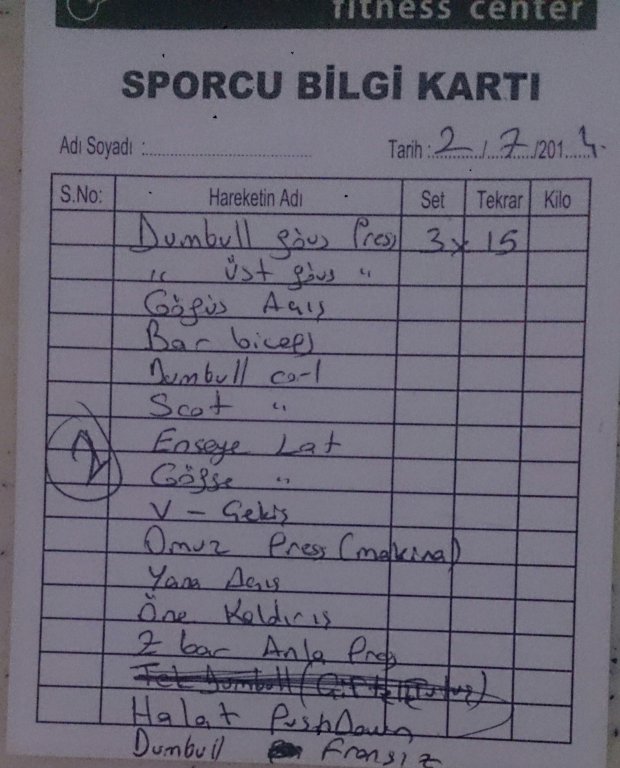 fitness center
SPORCU BİLGİ KARTI
Adı Soyadı :
Tarih : 2 / 7 /2014.
S.No: Hareketin Adı Set Tekrar Kilo
Dumbull göüs Press 3 x 15
" üst göüs "
Göğüs Açış
Bar biceps
Dumbull co-l
Scot "
Enseye Lat
2
Göğse "
V - Çekiş
Omuz Press (makina)
Yana Açış
Öne Kaldırış
Z bar Anla Press
Tek Dumbull (Çift el Tutuş)
Halat PushDown
Dumbull Fransız